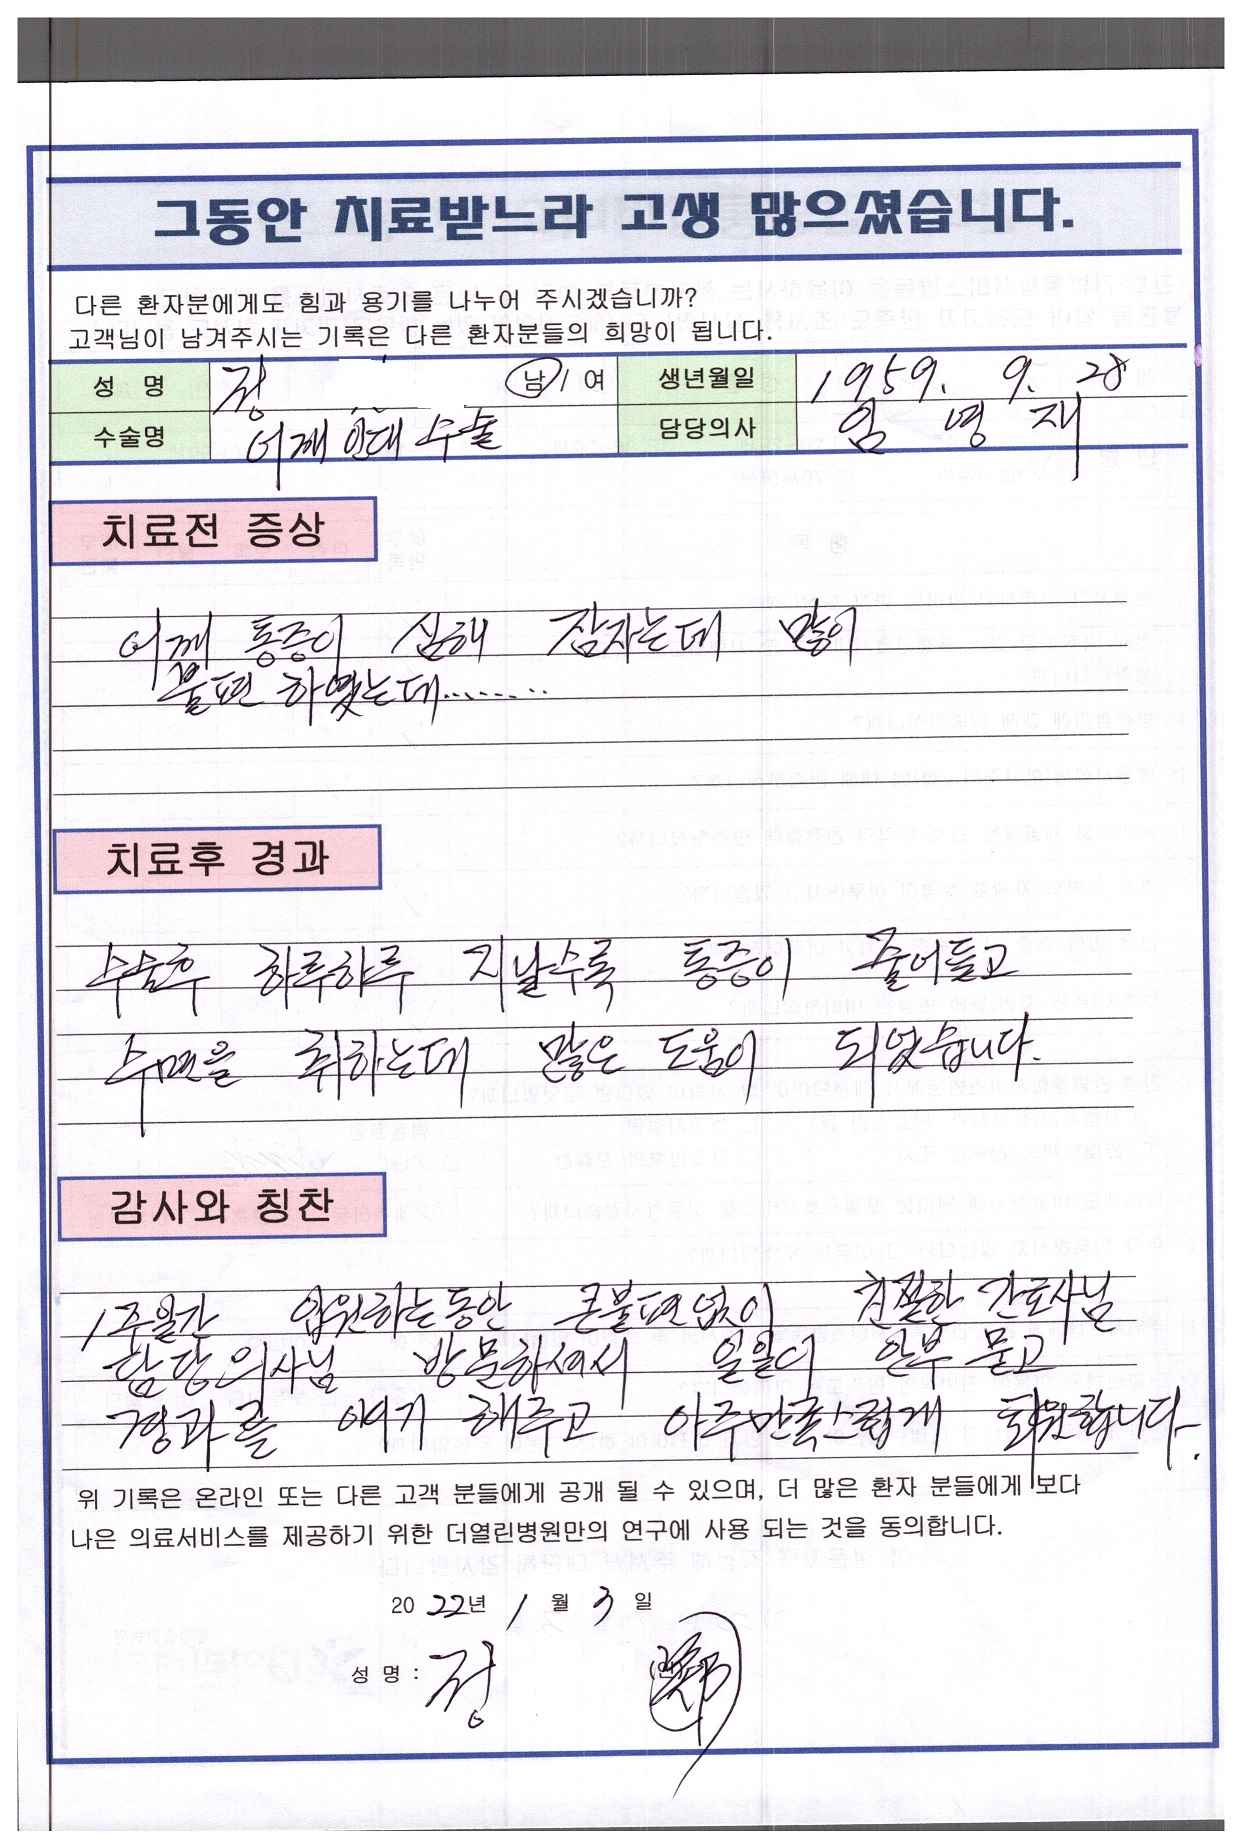 그동안 치료받느라 고생 많으셨습니다.
다른 환자분에게도 힘과 용기를 나누어 주시겠습니까?
고객님이 남겨주시는 기록은 다른 환자분들의 희망이 됩니다.
성 명 정 남 / 여 생년월일 1959. 9. 28
수술명 어깨 인대 수술 담당의사 임 명 재
치료전 증상
어깨 통증이 심해 잠자는데 많이
불편 하였는데........
치료후 경과
수술후 하루하루 지날수록 통증이 줄어들고
수면을 취하는데 많은 도움이 되었습니다.
감사와 칭찬
1주일간 입원하는동안 큰불편없이 친절한 간호사님
담당의사님 방문하셔서 일일이 안부 묻고
경과를 얘기 해주고 아주만족스럽게 퇴원합니다.
위 기록은 온라인 또는 다른 고객 분들에게 공개 될 수 있으며, 더 많은 환자 분들에게 보다
나은 의료서비스를 제공하기 위한 더열린병원만의 연구에 사용 되는 것을 동의합니다.
2022년 1 월 3 일
성 명 : 정